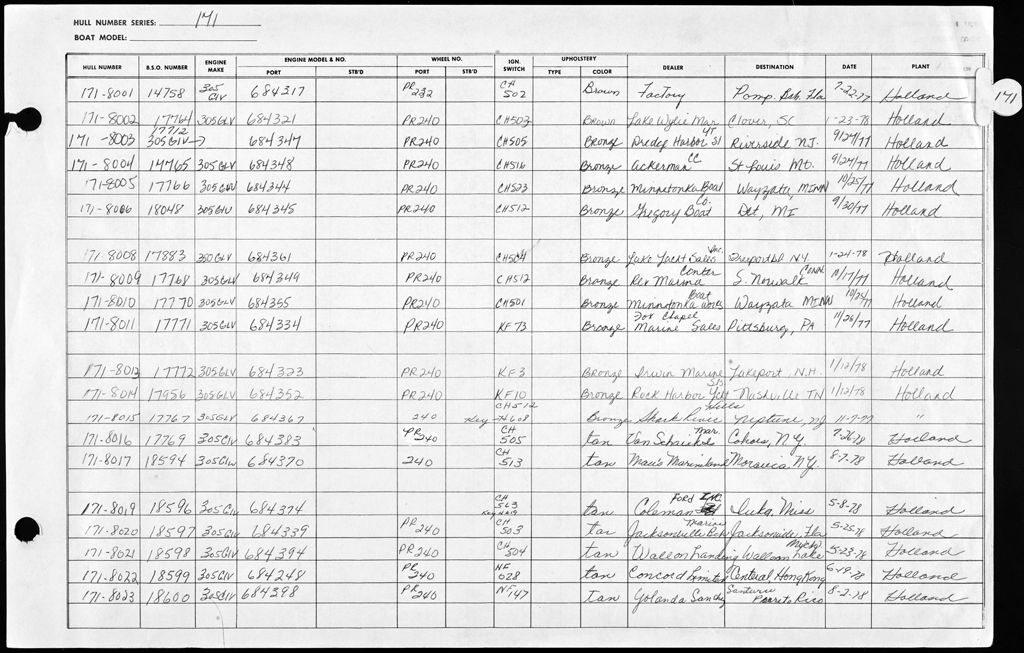 HULL NUMBER SERIES: 171
BOAT MODEL:
HULL NUMBER B.S.O. NUMBER ENGINE MAKE ENGINE MODEL & NO. PORT STB'D WHEEL NO. PORT STB'D IGN. SWITCH UPHOLSTERY TYPE COLOR DEALER DESTINATION DATE PLANT
171-8001 14758 305 GLV 684317 PR 232 CH 502 Brown Factory Pomp. Bch. Fla 7-22-77 Holland
171
171-8002 17764 305GLV 684321 PR240 CH503 Brown Lake Wylie Mar Clover, SC 1-23-78 Holland
171-8003 17712 305GLV 684347 PR240 CH505 Bronze Dredge Harbor Yt Sl Riverside N.J. 9/27/77 Holland
171-8004 14765 305GLV 684348 PR240 CH516 Bronze Ackerman CC St Louis Mo. 9/27/77 Holland
171-8005 17766 305GLV 684344 PR240 CH523 Bronze Minnetonka Boat Wayzata, MINN 10/25/77 Holland
171-8006 18048 305GLV 684345 PR240 CH512 Bronze Gregory Boat Co. Det, MI 9/30/77 Holland
171-8008 17883 350GLV 684361 PR240 CH504 Bronze Lake Yacht Sales Inc. Freeport N.Y. 1-24-78 Holland
171-8009 17768 305GLV 684349 PR240 CH512 Bronze Rex Marina Center S. Norwalk Conn 10/17/77 Holland
171-8010 17770 305GLV 684355 PR240 CH501 Bronze Minnetonka Boat Works Wayzata MINN 10/25/77 Holland
171-8011 17771 305GLV 684334 PR240 KF73 Bronze Fox Chapel Marine Sales Pittsburg, PA 11/28/77 Holland
171-8012 17772 305GLV 684323 PR240 KF3 Bronze Irwin Marine Lakeport, N.H. 1/12/78 Holland
171-8014 17956 305GLV 684352 PR240 KF10 Bronze Rock Harbor Yt Nashville TN 1/12/78 Holland
171-8015 17767 305GLV 684367 240 CH512 Key H608 Bronze Shark River Hills Neptune, NJ 11-9-77 "
171-8016 17769 305GLV 684383 PR 240 CH 505 tan Van Schaick Mar. Cohoes, N.Y. 7-26-78 Holland
171-8017 18594 305GLV 684370 240 CH 513 tan Marineland Moravia N.Y. 8-7-78 Holland
171-8019 18596 305GLV 684374 CH 563 Key tan Coleman Ford Inc. Iuka, Miss 5-8-78 Holland
171-8020 18597 305GLV 684339 PR 240 CH 503 tan Jacksonville Marine Jacksonville, Fla 5-25-78 Holland
171-8021 18598 305GLV 684394 PR 240 CH 504 tan Walloon Landing Walloon Lake Mich 5-23-78 Holland
171-8022 18599 305GLV 684248 PR 240 NF 028 tan Concord Limited Central Hong Kong 6-19-78 Holland
171-8023 18600 305GLV 684398 PR 240 NF 147 tan Yolanda Sandy Santurce Puerto Rico 8-2-78 Holland